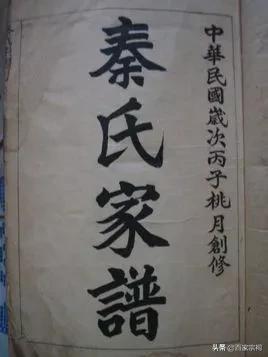 中華民國歲次丙子桃月創修
秦氏家譜
头条 @百家宗祠